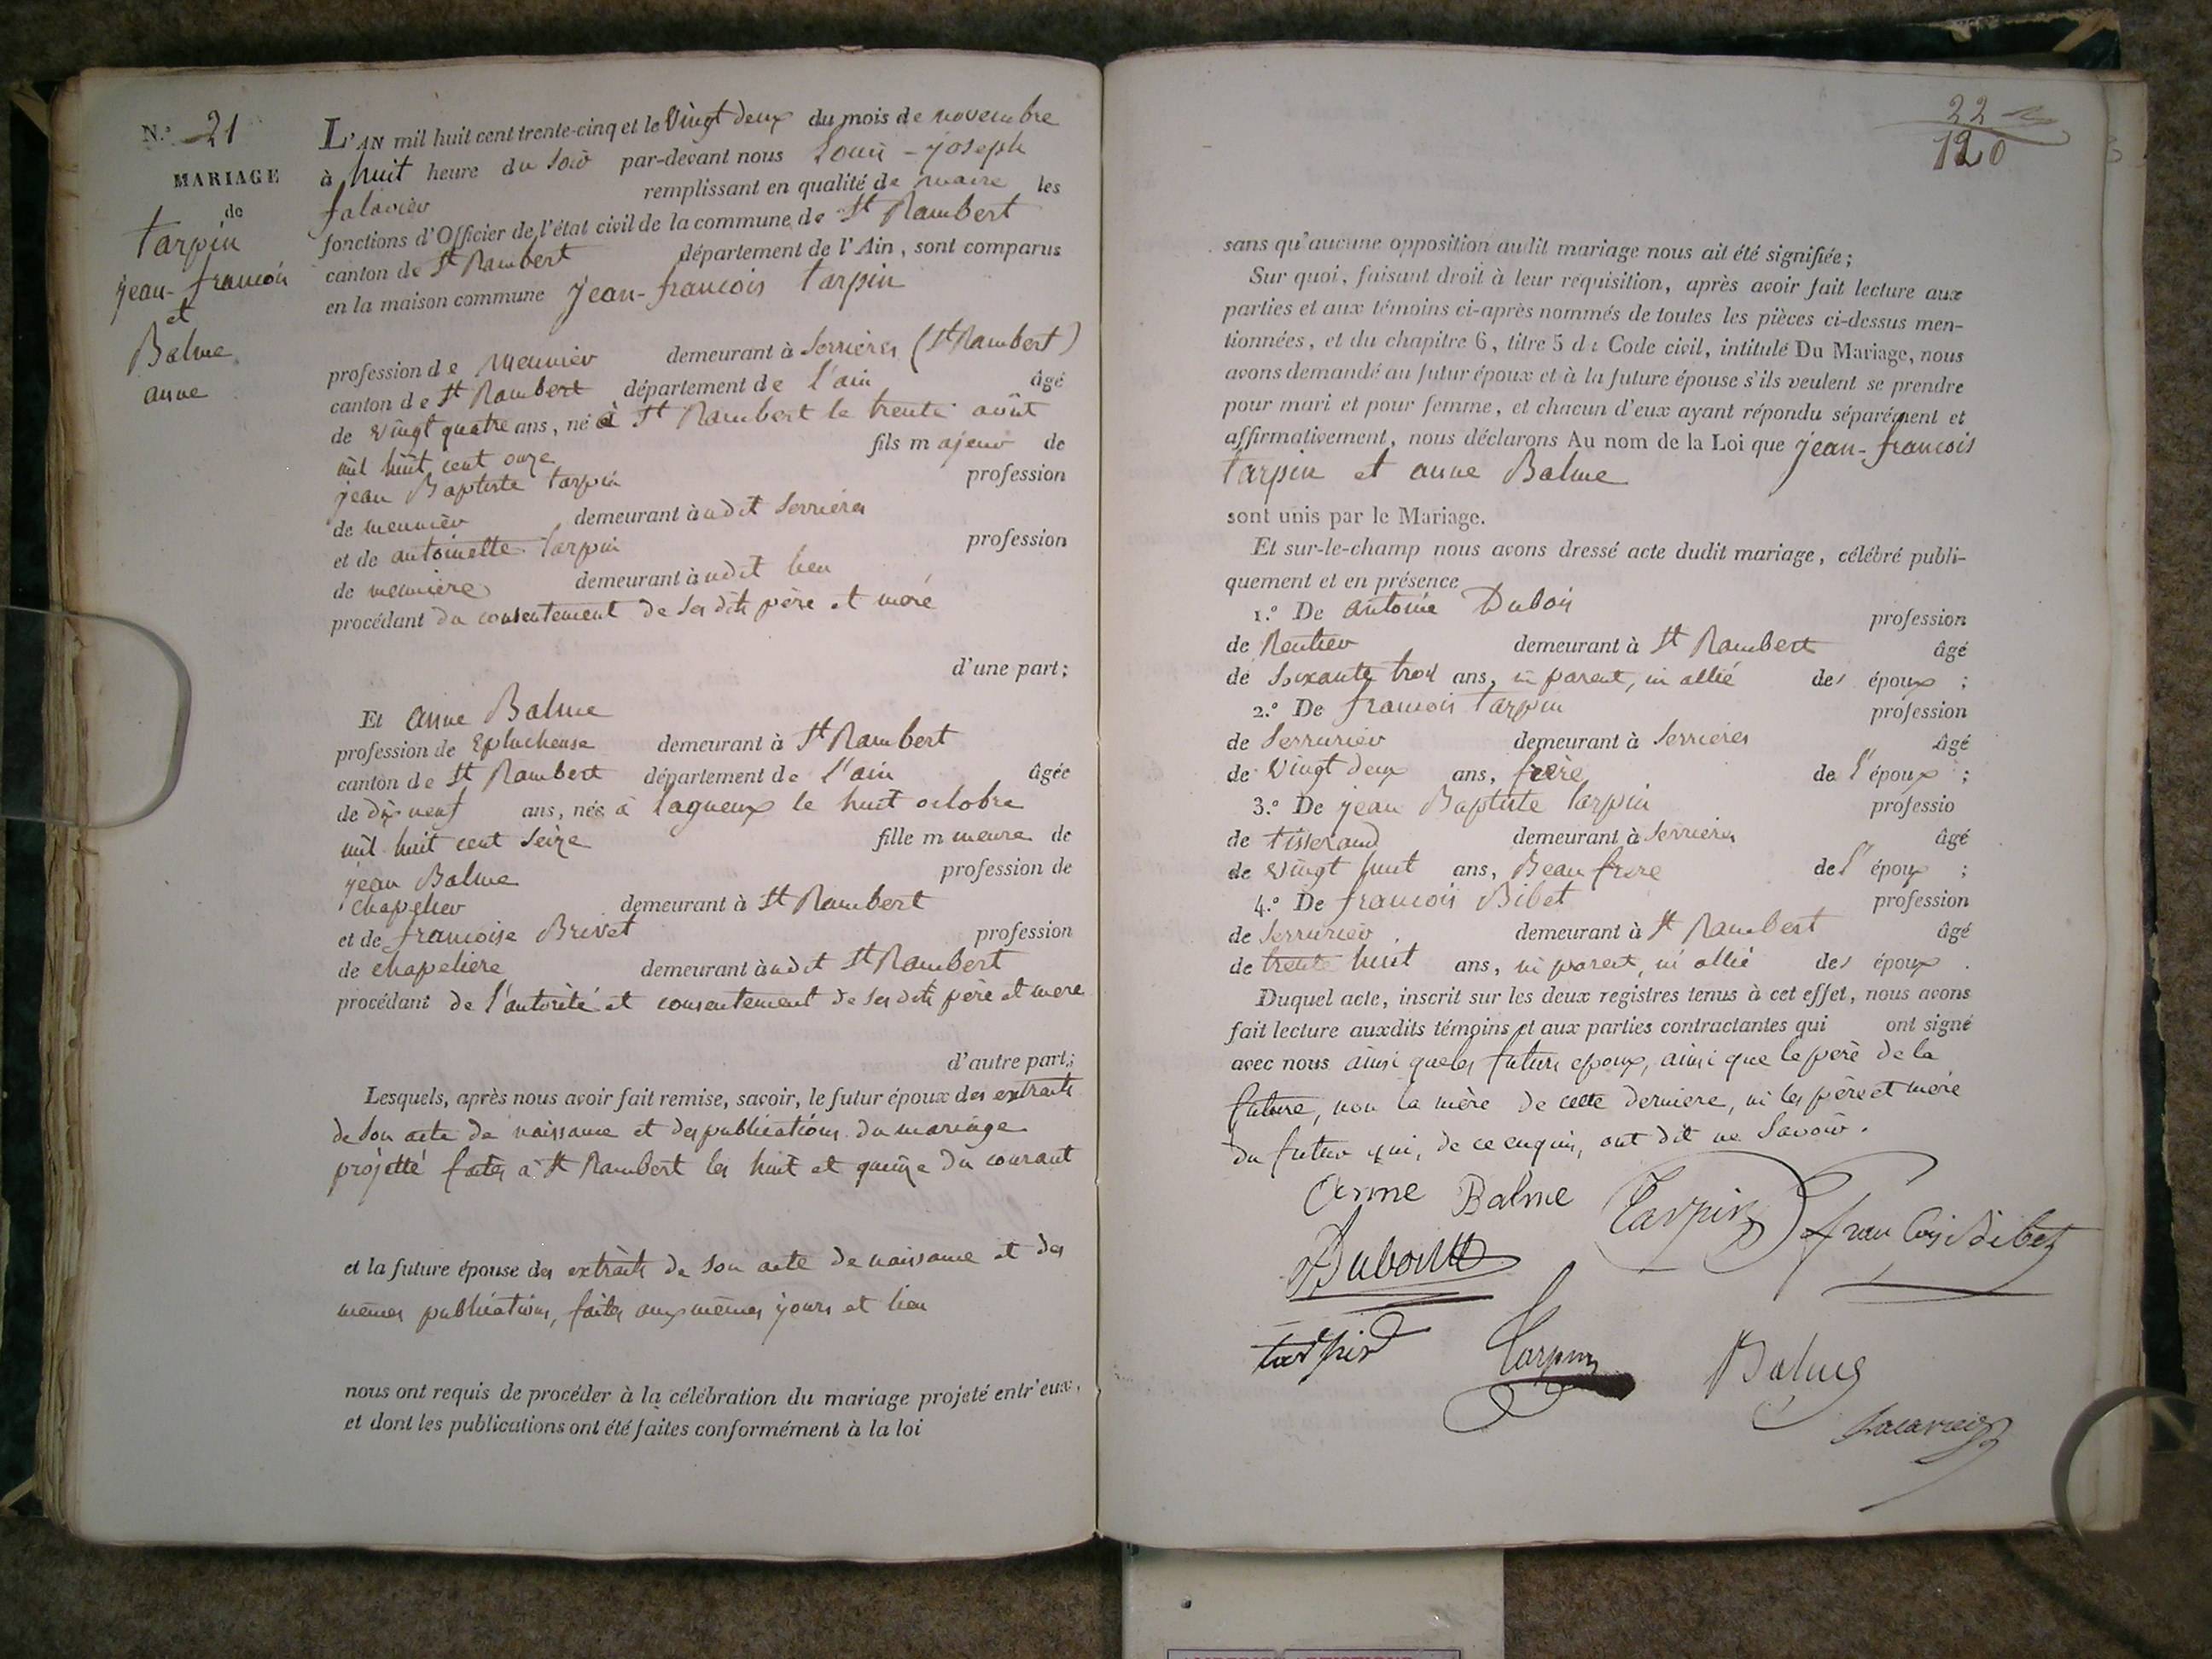 N.º 21
MARIAGE
de
tarpin
jean-francois
et
Balme
anne
L'AN mil huit cent trente-cinq et le Vingt deux du mois de novembre
à huit heure du Soir par-devant nous Louis-joseph
falavier remplissant en qualité de maire les
fonctions d'Officier de l'état civil de la commune de St Rambert
canton de St Rambert département de l'Ain, sont comparus
en la maison commune jean-francois tarpin
profession de meunier demeurant à Serrières (St Rambert)
canton de St Rambert département de l'ain âgé
de vingt quatre ans, né à St Rambert le trente août
mil huit cent onze fils majeur de
jean Baptiste tarpin profession
de meunier demeurant àudit Serrières
et de antoinette tarpin profession
de meunière demeurant àudit lieu
procédant du consentement de ses dits père et mère
d'une part;
Et anne Balme
profession de Eplucheuse demeurant à St Rambert
canton de St Rambert département de l'ain âgée
de dix neuf ans, née à lagneux le huit octobre
mil huit cent Seize fille mineure de
jean Balme profession de
chapelier demeurant à St Rambert
et de francoise Brivet profession
de chapeliere demeurant àudit St Rambert
procédant de l'autorité et consentement de ses dits père et mere
d'autre part;
Lesquels, après nous avoir fait remise, savoir, le futur époux des extraits
de son acte de naissance et des publications du mariage
projetté faites à St Rambert les huit et quinze du courant
et la future épouse des extraits de son acte de naissance et des
mêmes publications, faites aux mêmes jours et lieu
nous ont requis de procéder à la célébration du mariage projeté entr'eux,
et dont les publications ont été faites conformément à la loi
22
120
sans qu'aucune opposition audit mariage nous ait été signifiée;
Sur quoi, faisant droit à leur réquisition, après avoir fait lecture aux
parties et aux témoins ci-après nommés de toutes les pièces ci-dessus men-
tionnées, et du chapitre 6, titre 5 du Code civil, intitulé Du Mariage, nous
avons demandé au futur époux et à la future épouse s'ils veulent se prendre
pour mari et pour femme, et chacun d'eux ayant répondu séparément et
affirmativement, nous déclarons Au nom de la Loi que jean-francois
tarpin et anne Balme
sont unis par le Mariage.
Et sur-le-champ nous avons dressé acte dudit mariage, célébré publi-
quement et en présence
1.º De antoine Dubois profession
de Rentier demeurant à St Rambert âgé
de Soixante trois ans, ni parent, ni allié des époux ;
2.º De francois tarpin profession
de Serrurier demeurant à Serrieres âgé
de Vingt deux ans, frère de l'époux ;
3.º De jean Baptiste tarpin professio
de tisserand demeurant à Serrieres âgé
de vingt huit ans, Beau frere de l'époux ;
4.º De francois Bibet profession
de Serrurier demeurant à St Rambert âgé
de trente huit ans, ni parent, ni allié des époux .
Duquel acte, inscrit sur les deux registres tenus à cet effet, nous avons
fait lecture auxdits témoins et aux parties contractantes qui ont signé
avec nous ainsi que les futurs epoux, ainsi que le père de la
future, non la mère de cette derniere, ni les père et mère
du futur qui, de ce enquis, ont dit ne Savoir.
Anne Balme
Tarpin
francois Bibet
Dubois
tarpin
Tarpin
Balme